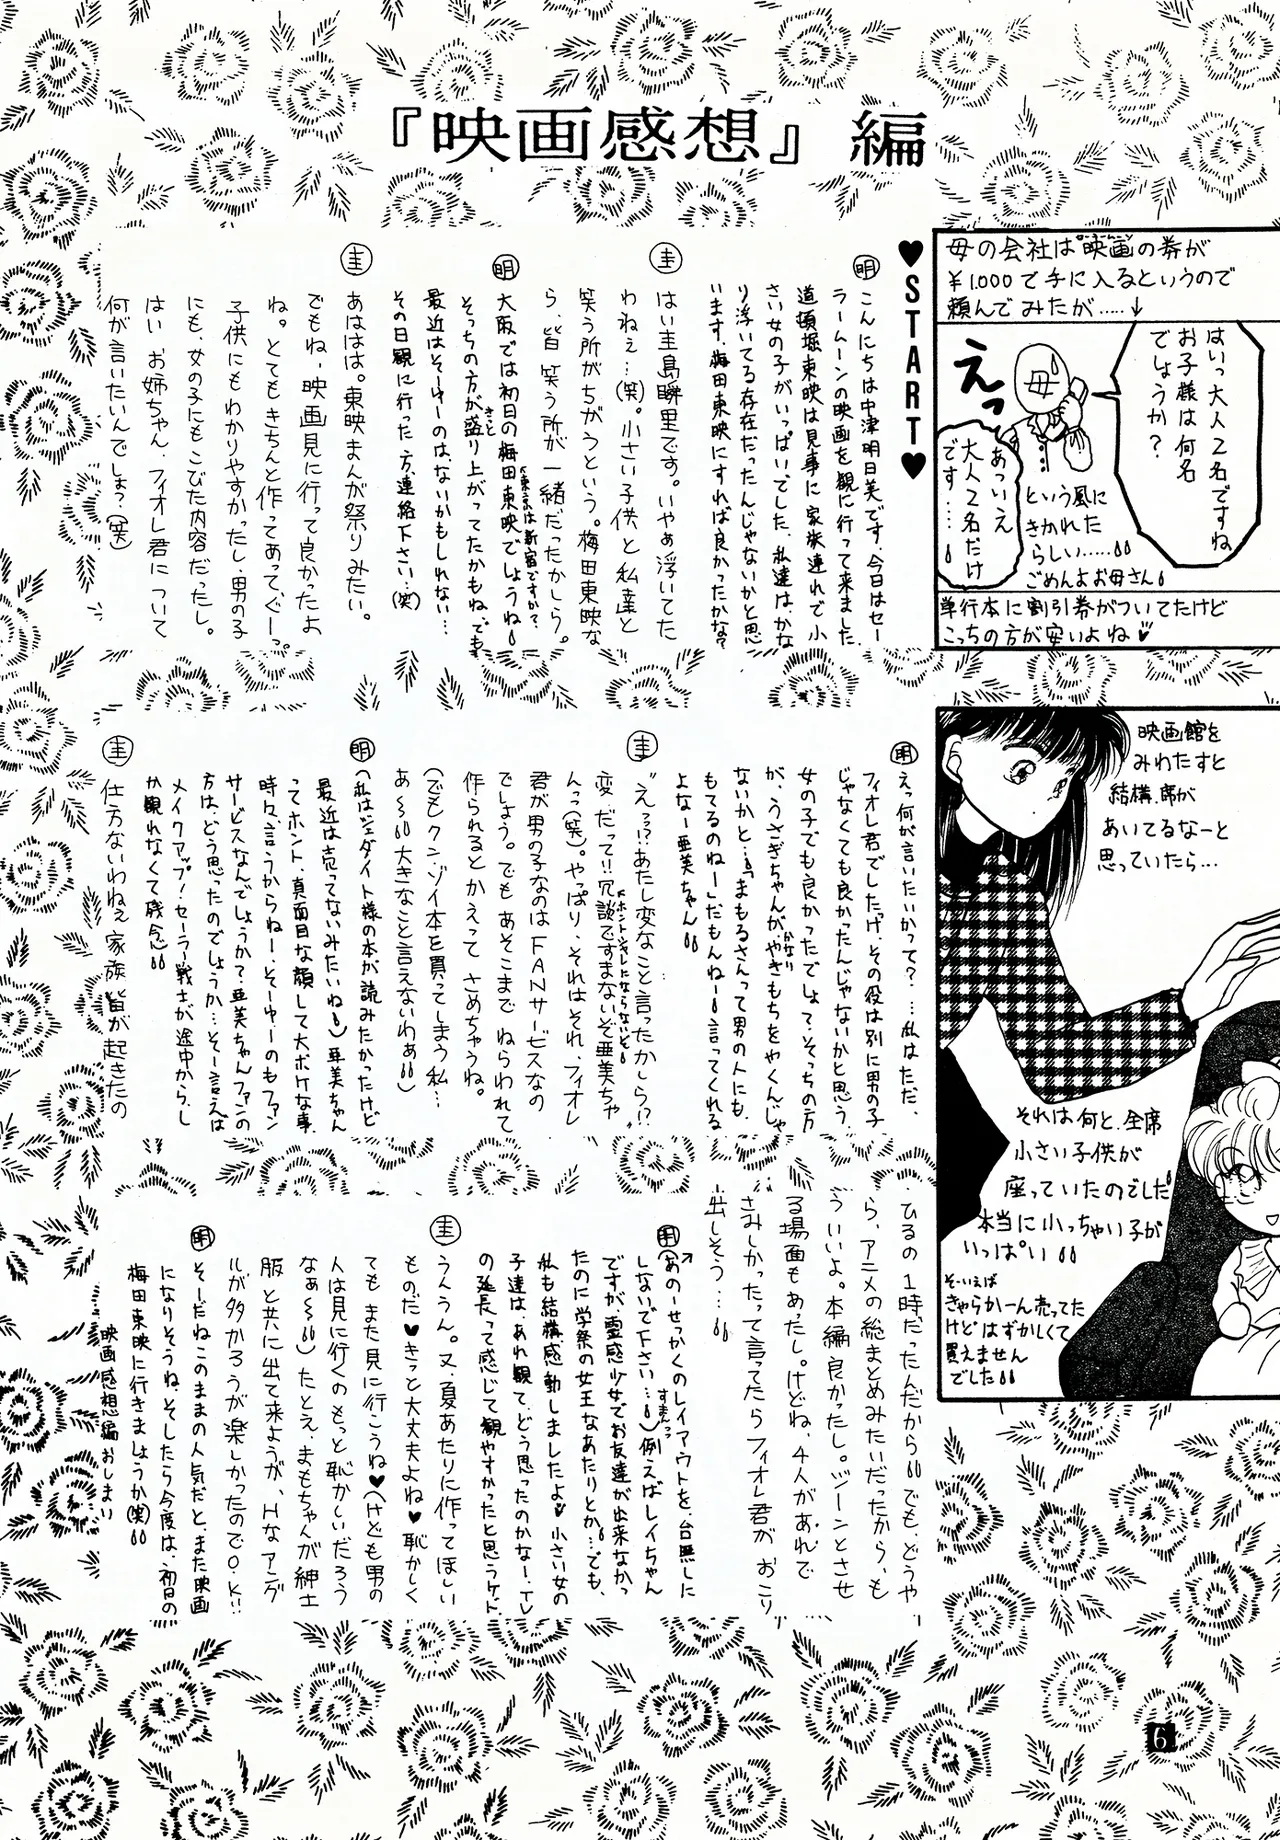 『映画感想』編
♥START♥
明 こんにちは中津明日美です。今日はセー
ラームーンの映画を観に行って来ました
道頓堀東映は見事に家族連れで小
さい女の子がいっぱいでした。私達は、かな
り浮いてる存在だったんじゃないかと思
います。梅田東映にすれば良かったかな?
圭 はい圭島瞬里です。いやぁ浮いてた
わねぇ…(笑)。小さい子供と私達と
笑う所がちがうという。梅田東映な
ら、皆笑う所が一緒だったかしら。
明 大阪では初日の梅田東映でしょうね
東京は新宿ですか?
そっちの方がきっと盛り上がってたかもね、でも
最近はそーゆーのは、ないかもしれない…
その日観に行った方、連格下さい。(笑)
圭 あははは。東映まんが祭りみたい。
でもね、映画見に行って良かったよ
ね。とてもきちんと作ってあって、ぐーっ。
子供にもわかりやすかったし、男の子
にも、女の子にもこびた内容だったし。
はい、お姉ちゃん、フィオレ君について
何が言いたいんでしょ?(笑)
母の会社は映画の券が
¥1.000で手に入るというので
頼んでみたが……
はいっ大人2名ですね
お子様は何名
でしょうか?
えっ
母
あっいえ
大人2名だけ
です……
という風に
きかれた
らしい……
ごめんよお母さん
単行本に割引券がついてたけど
こっちの方が安いよね
明 えっ何が言いたいかって?…私はただ、
フィオレ君でしたっけ、その役は別に男の子
じゃなくても良かったんじゃないかと思う、
女の子でも良かったでしょ、そっちの方
が、うさぎちゃんがかなりやきもちをやくんじゃ
ないかと…「まもるさんって男の人にも、
もてるのねー」だもんねー言ってくれる
よなー亜美ちゃん
圭 “えっ?”あたし変なこと言ったかしら!?
変、だって!!冗談ですまないぞ亜美ちゃ
ホントシャレにならないど
んっっ(笑)。やっぱり、それはそれ、フィオレ
君が男の子なのはFANサービスなの
でしょう。でもあそこまでねらわれて
作られるとかえってさめちゃうね。
(でもクンゾイト本を買ってしまう私…
あ〜大きなこと言えないわぁ)
明 (私はジェダイト様の本が読みたかったけど
最近は売ってないみたいね)亜美ちゃん
ってホント、真面目な顔して大ボケな事
時々、言うからねー、そーゆーのもファン
サービスなんでしょうか?亜美ちゃんファンの
方は、どう思ったのでしょうか…そー言えば
メイクアップ!セーラー戦士が途中からし
か観れなくて残念
圭 仕方ないわねぇ家族皆が起きたの
映画館を
みわたすと
結構、席が
あいてるなーと
思っていたら…
それは何と、全席
小さい子供が
座っていたのでした
本当に小っちゃい子が
いっぱい
そーいえば
きゃらかーん売ってた
けどはずかしくて
買えません
でした
ひるの1時だったんだから でも、どうや
ら、アニメの総まとめみたいだったから、も
ういいよ。本編良かったし。ジーンとさせ
る場面もあったし。けどね、4人があれで
さみしかったって言ってたらフィオレ君がおこり
出しそう…
明 (あのーせっかくのレイアウトを、台無しに
しないで下さい…)例えばレイちゃん
すまんっっ
ですが、霊感少女でお友達が出来なかっ
たのに学祭の女王なあたりとか…でも、
私も結構、感動しましたよ 小さい女の
子達は、あれ観て、どう思ったのかな−、TV
の延長って感じで観やすかったと思うケド
圭 うんうん。又、夏あたりに作ってほしい
ものだ♥きっと大丈夫よね♥恥かしく
てもまた見に行こうね♥(けども男の
人は見に行くのもっと恥かしいだろう
なぁ〜)たとえ、まもちゃんが紳士
服と共に出て来ようが、Hなアング
ルが多かろうが楽しかったのでO.K!!
明 そーだねこのままの人気だと、また映画
になりそうね、そしたら今度は、初日の
梅田東映に行きましょうか(笑)
映画感想編おしまい
6